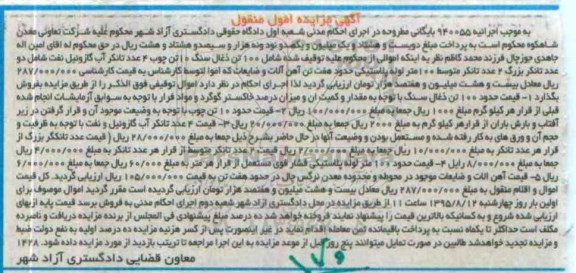 آگهی مزایده اموال منقول
به موجب اجرائیه ۹۴۰۰۵۵ بایگانی مطروحه در اجرای احکام مدنی شعبه اول دادگاه حقوقی دادگستری آزاد شهر محکوم علیه شرکت تعاونی معدن
شاهکوه محکوم است به پرداخت مبلغ دویست و هشتاد و یک میلیون و یکصد و نود ونه هزار و سیصد و هشتاد و هشت ریال در حق محکوم له آقای امین اله
جاهدی جوزچال فرزند محمد کاظم نظر به اینکه اموالی از محکوم علیه توقیف شده شامل ۱۰۰ تن زغال سنگ ۱۰ تن چوب ۴ عدد تانکر آب گازوئیل نفت شامل دو
عدد تانکر بزرگ ۲ عدد تانکر متوسط ۱۰۰ متر لوله پلاستیکی حدود هفت تن آهن آلات و ضایعات که اموال توسط کارشناس به قیمت کارشناسی ۲۸۷/۰۰۰/۰۰۰
ریال معادل بیست و هشت میلیون و هفتصد هزار تومان ارزیابی گردید لذا اجرای احکام در نظر دارد اموال توقیفی فوق الذکر را از طریق مزایده بفروش
بگذارد ۱- قیمت حدود ۱۰۰ تن زغال سنگ با توجه به مقدار و کمیت آن و میزان درصد خاکستر گوگرد و مواد فرار با توجه به سوابق آزمایشات انجام شده
قبلی از قرار هر کیلو گرم مبلغ ۱۰۰۰ ریال جمعا به مبلغ ۱۰۰/۰۰۰/۰۰۰ ریال ۲- قیمت حدود ۱۰ تن چوب با توجه به وضعیت موجود آن و قرار گرفتن در زیر
آفتاب و بارش باران از قرار هر کیلو گرم به مبلغ ۲۰۰۰ ریال جمعا به مبلغ ۲۰/۰۰۰/۰۰۰ ریال ۳- قیمت ۴ عدد تانکر آب گازوئیل و نفت با توجه به ظرفیت و
حجم آن و ورق های به کار رفته شده و مستعمل بودن و وضعیت آنها در حال حاضر بشرح ذیل جمعا به مبلغ ۲۸/۰۰۰/۰۰۰ ریال قیمت دو عدد تانکر بزرگ از
قرار هر عدد تانکر به مبلغ ۱۰/۰۰۰/۰۰۰ ریال جمعا به مبلغ ۲۰/۰۰۰/۰۰۰ ریال قیمت ۲ عدد تانکر متوسط از قرار هر عدد تانکر به مبلغ ۴/۰۰۰/۰۰۰ ریال
جمعا به مبلغ ۸/۰۰۰/۰۰۰ ریال ۴- قیمت حدود ۱۰۰ متر لوله پلاستیکی فشار قوی مستعمل از قرار هر متر به مبلغ ۶۰/۰۰۰ ریال جمعا به مبلغ ۶/۰۰۰/۰۰۰
ریال ۵- قیمت آهن آلات و ضایعات موجود در محوطه و محدوده معدن نرگس چال در حدود هفت تن به قیمت ۱۰۵/۰۰۰/۰۰۰ ریال ارزیابی گردید. کل قیمت
اموال و اقلام منقول به مبلغ ۲۸۷/۰۰۰/۰۰۰ ریال معادل بیست و هشت میلیون و هفتصد هزار تومان ارزیابی گردیده است مقرر گردید اموال موصوف برای
اولین بار روز چهارشنبه ۱۳۹۵/۸/۱۲ ساعت ۱۱ از طریق مزایده در محل دادگستری آزاد شهر شعبه دوم اجرای احکام مدنی به فروش برسد قیمت پایه از بهای
ارزیابی شده شروع و به کسانیکه بالاترین قیمت را پیشنهاد نمایند فروخته خواهد شد ده درصد مبلغ پیشنهادی فی المجلس از برنده مزایده دریافت و نامبرده
مکلف است حداکثر تا یکماه نسبت به پرداخت باقیمانده ثمن معامله اقدام نماید در غیر اینصورت پس از کسر هزینه مزایده ده درصد اولیه به نفع دولت ضبط
و مزایده تجدید خواهد شد طالبین در صورت تمایل میتوانند پنج روز قبل از موعد مزایده به این اجرا مراجعه تا ترتیب بازدید از مورد مزایده داده شود. ۱۴۲۸
معاون قضایی دادگستری آزاد شهر